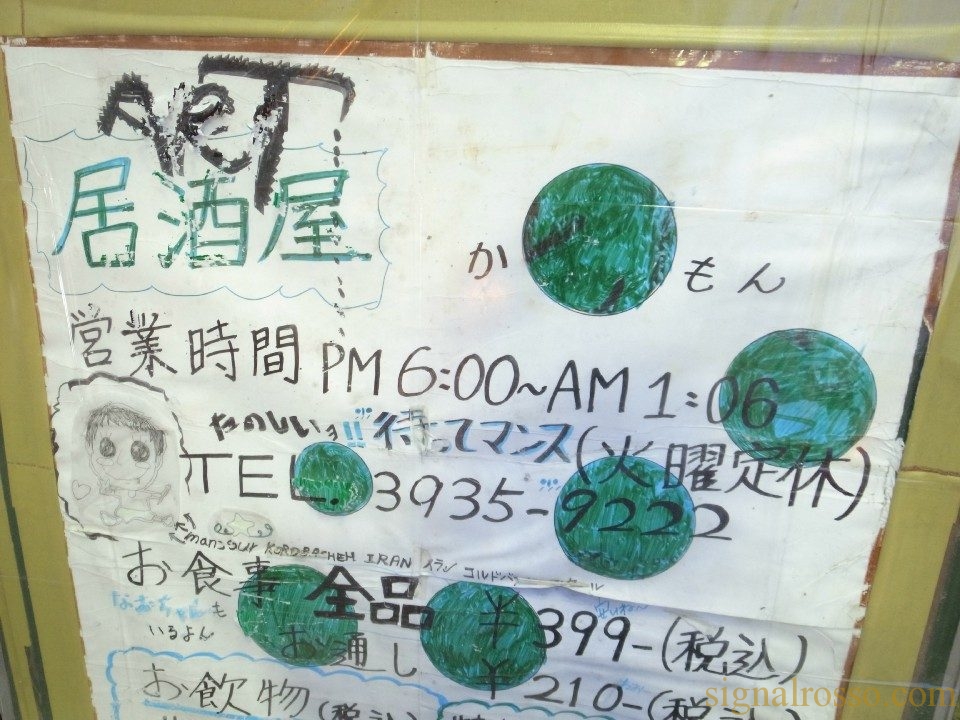 居酒屋
か もん
営業時間 PM 6:00~AM 1:06
たのしいョ!! 待ってマンス (火曜定休)
TEL. 3935-9222
manssur IRAN イラン
お食事 全品 ¥399-(税込)
なおちゃんも
いるよん
お通し ¥210-(税込)
お飲物 (税込)
signalrosso.com